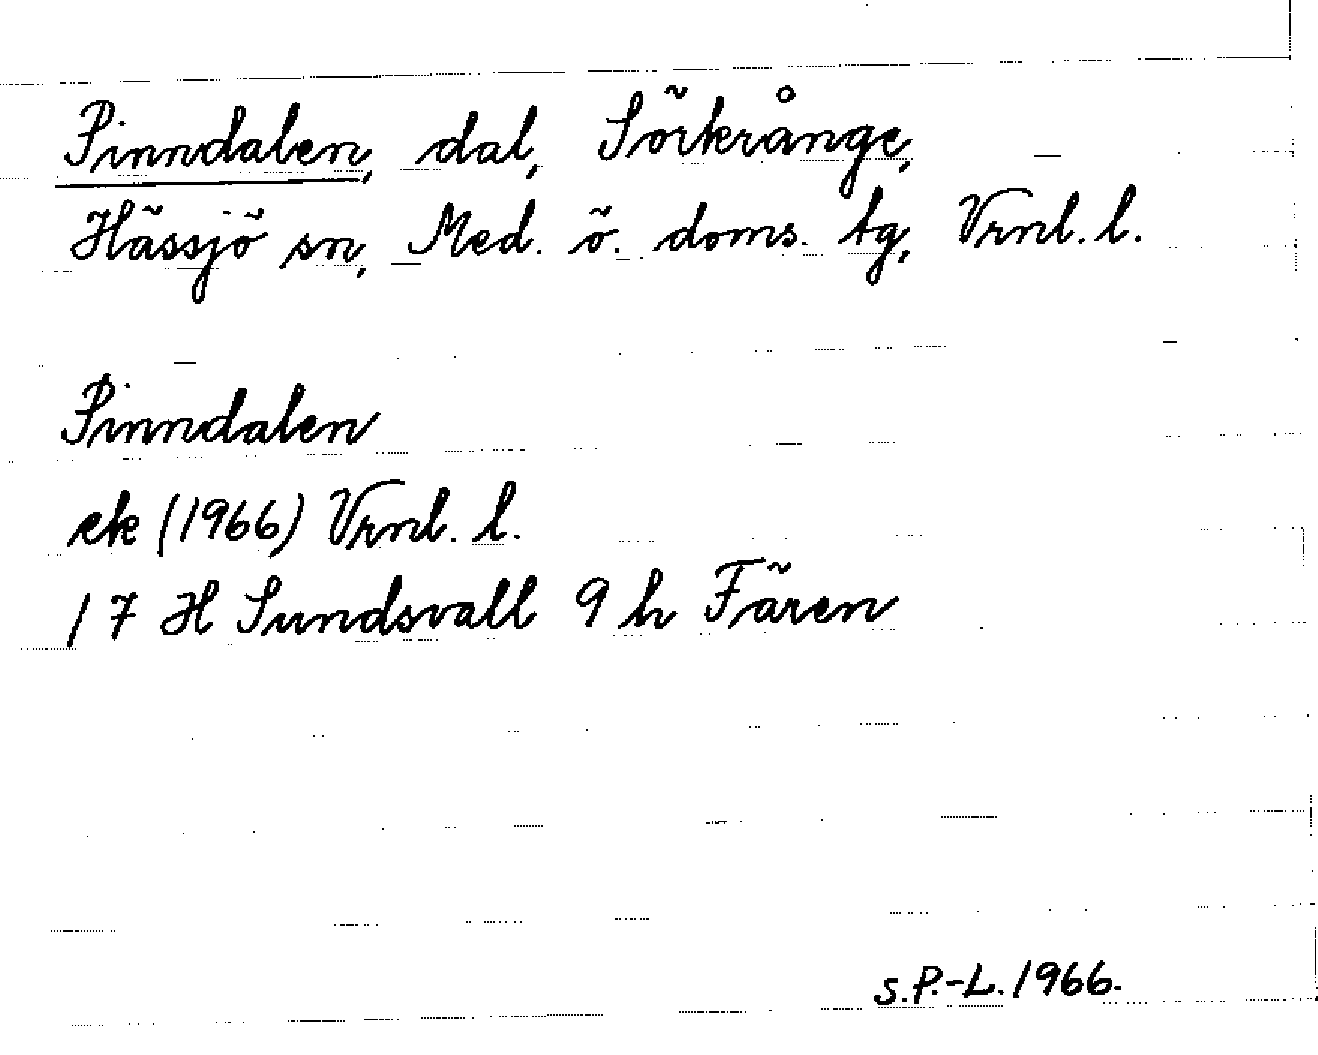 Pinndalen, dal, Sörkrånge,
Hässjö sn, Med. ö. doms. tg, Vrnl. l.
Pinndalen
ek (1966) Vrnl. l.
17 H Sundsvall 9 h Fären
S.P.-L. 1966.